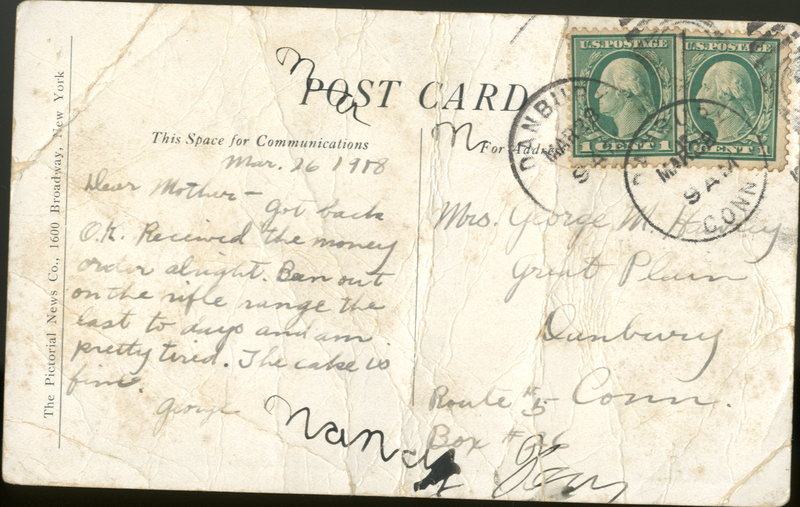 POST CARD
This Space for Communications
For Address
Mar. 26 1918
Dear Mother –
Got back
O.K. Received the money
order alright. Ben out
on the rifle range the
last to days and am
pretty tired. The cake is
fine.
George
Nancy
Mrs. George M. Hawley
Great Plain
Danbury
Conn.
Route #5
Box #26
U.S. POSTAGE
1 CENT 1
U.S. POSTAGE
CENT 1
DANBURY
MAR 28
9 AM
CONN
The Pictorial News Co., 1600 Broadway, New York